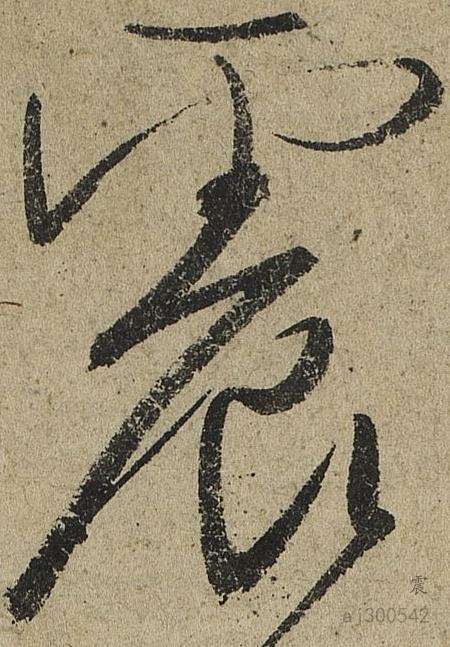 震
震
aj300542